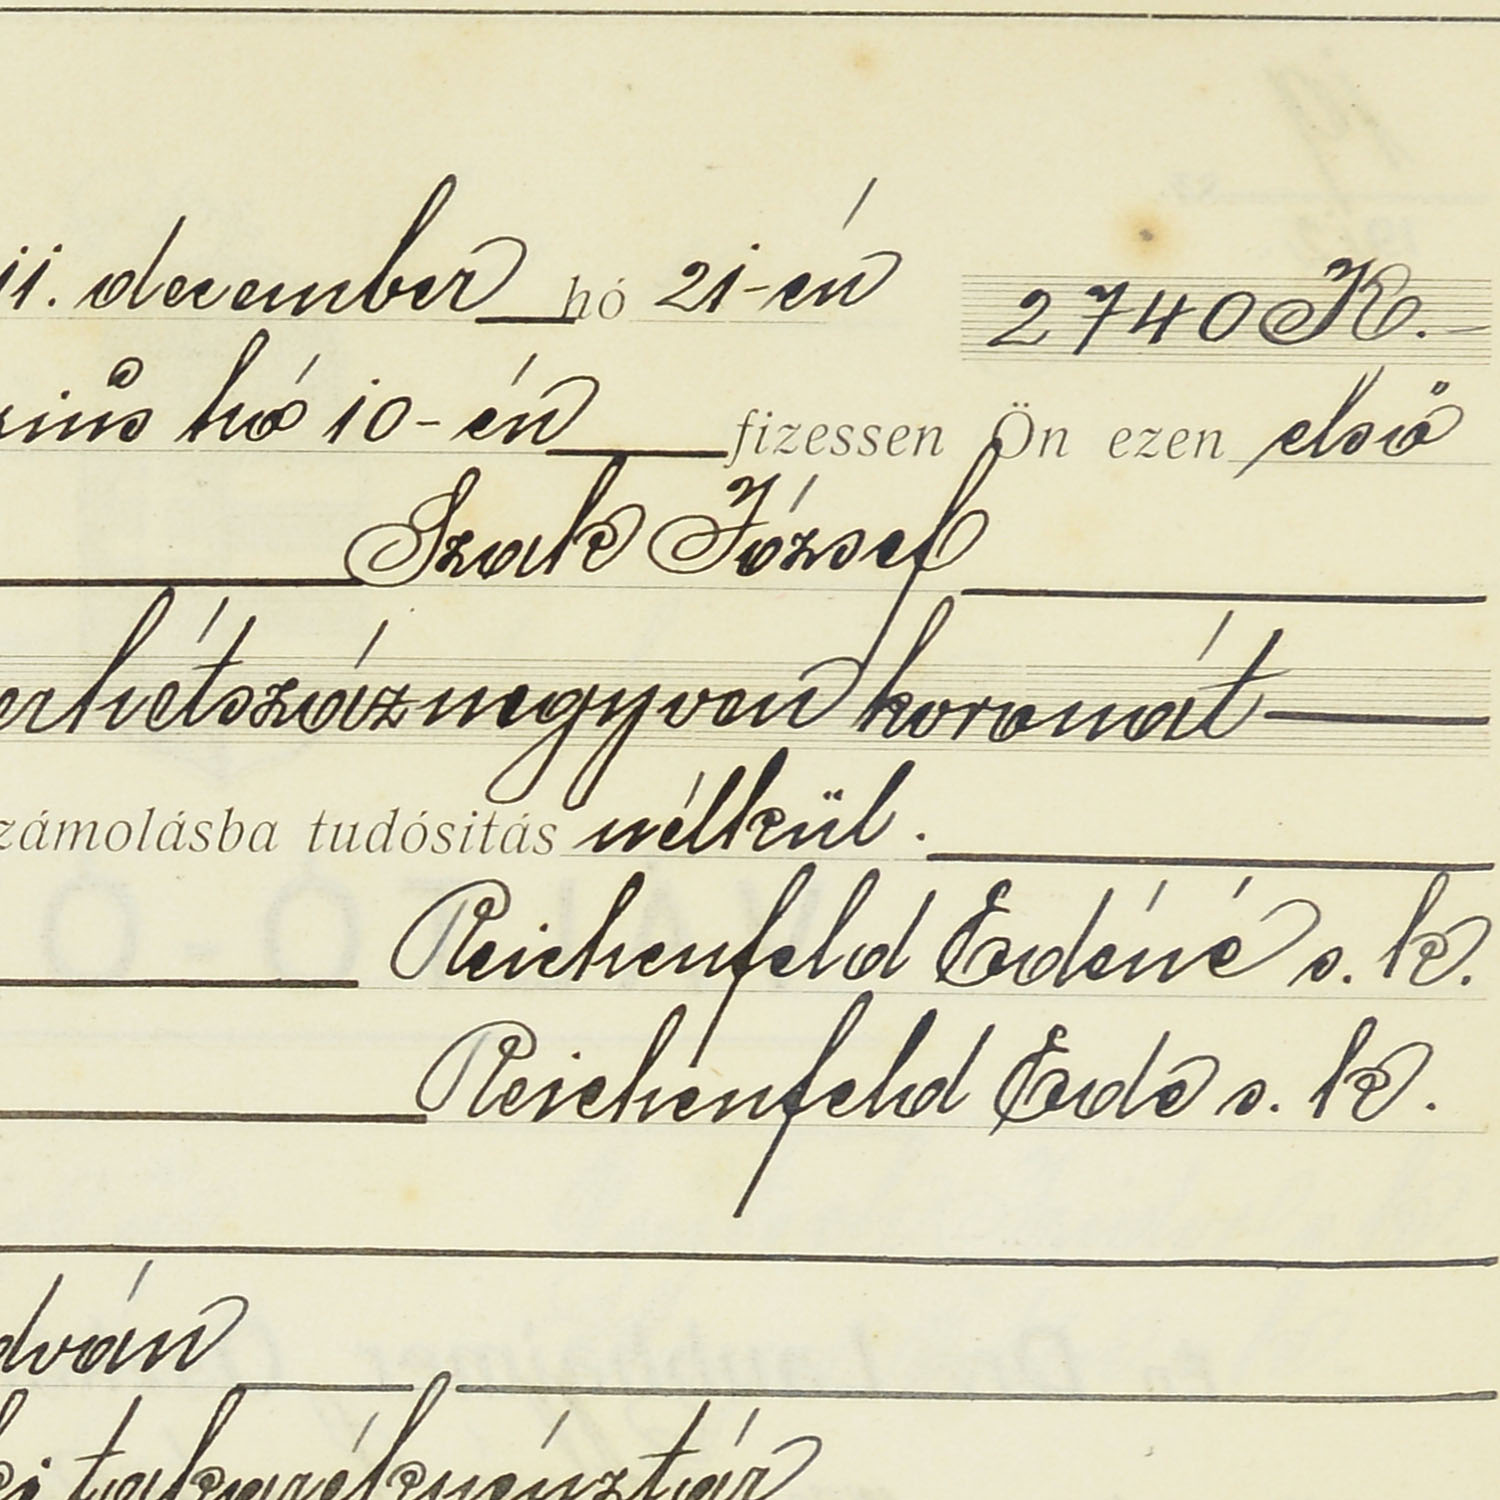 11. december hó 21-én 2740 K.-
rius hó 10-én fizessen Ön ezen első
Szak József
erhétszáznegyven koronát
zámolásba tudósitás nélkül.
Reichenfeld Edéné s. k.
Reichenfeld Ede s. k.
dván
ki takarékpénztár